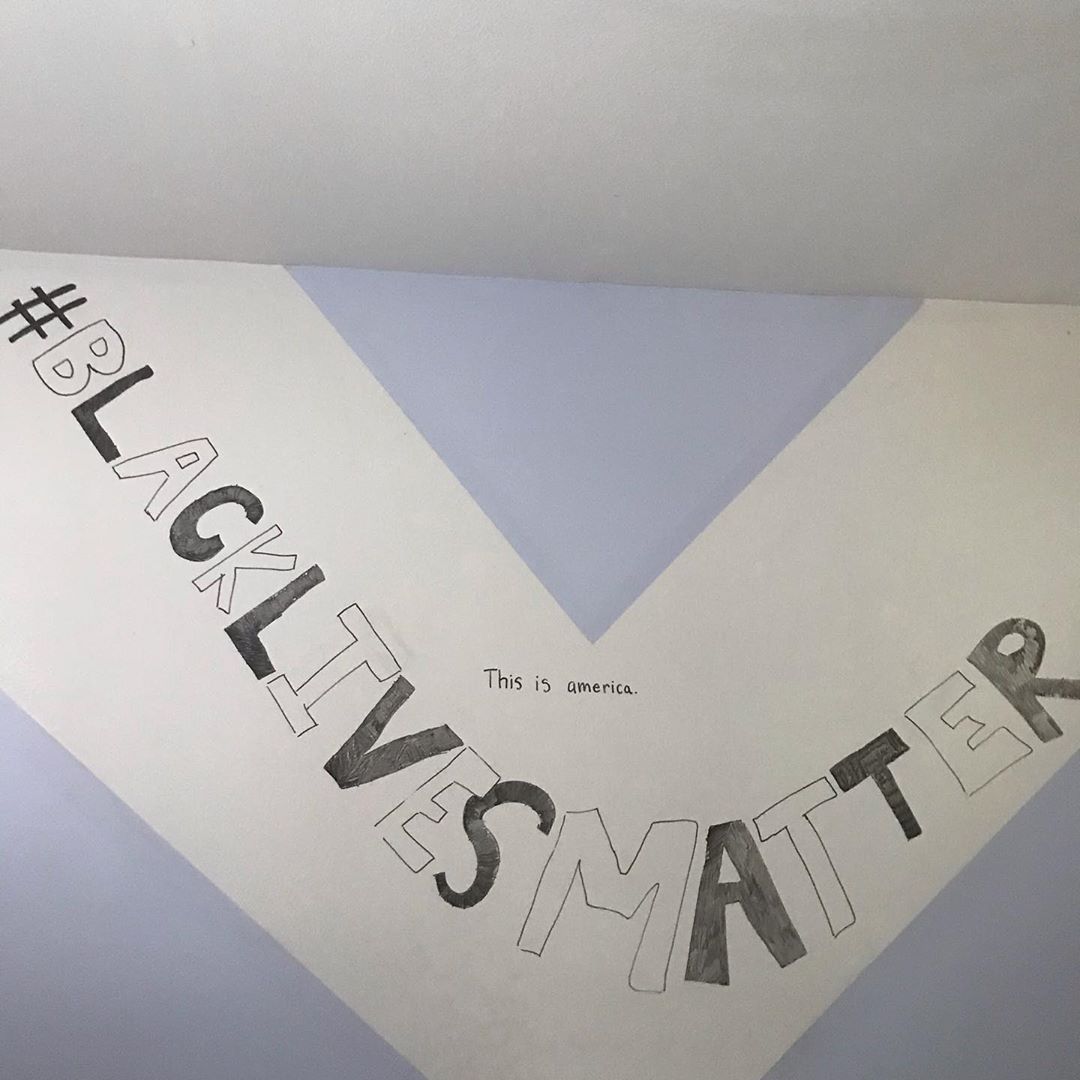 #BLACKLIVESMATTER
This is america.